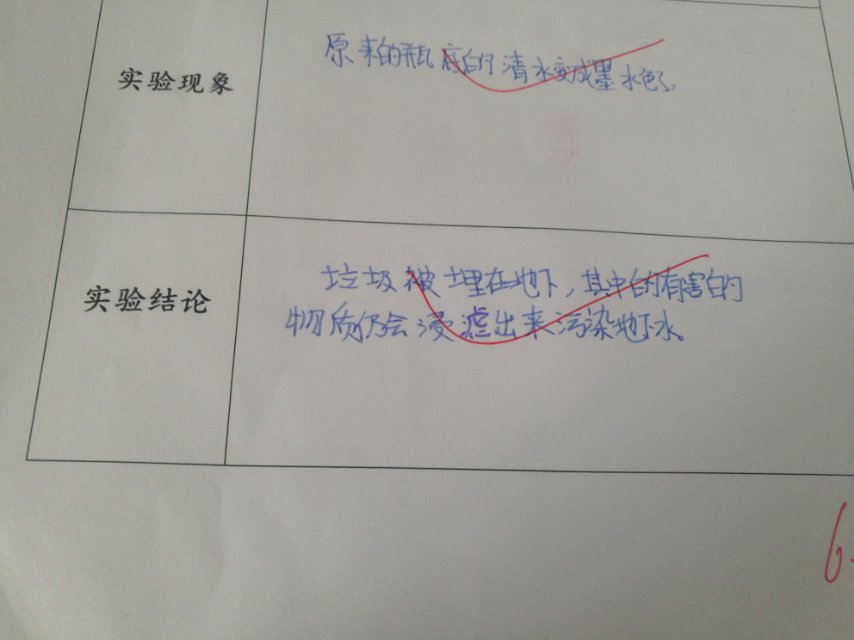 实验现象
原来的瓶底的清水变成墨水色了。
实验结论
垃圾被埋在地下，其中的有害的
物质仍会浸滤出来污染地下水。
6.